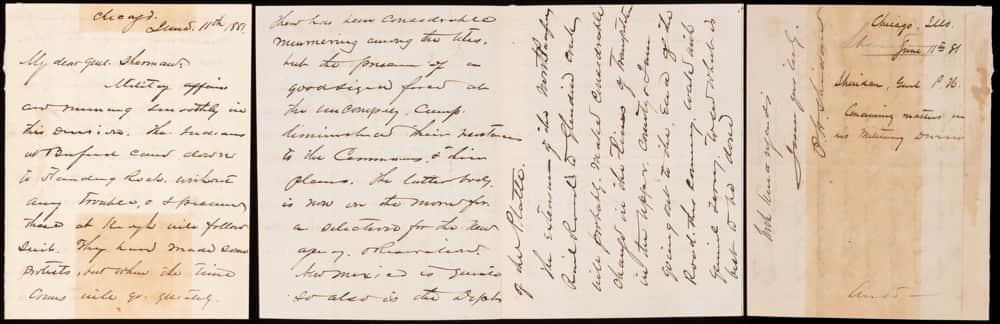 Chicago.
June. 11th 1881.
My dear Genl. Sherman.
Military affairs
are running smoothly in
this division. The Indians
at Buford came down
to Standing Rock without
any trouble, & I presume
those at Keogh will follow
suit. They have made some
protests, but when the time
comes will go quietly.
There has been considerable
murmering among the Utes,
but the presence of a
good sized force at
the uncompagre Camp
diminished their resistance
to the Commissions
plans. The latter body
is now on the move for
a selection for the new
agency & reservation.
New Mexico is quiet
so also is the Dept
of the Platte.
The extension of the Northwestern
Rail Road to
will probably make considerable
change in the lines of
in the upper country. I am
going out to the end of the
Road this coming week with
General to see what is
best to be done
With kind regards
Yours truly
P. H. Sheridan
Chicago, Ills.
June 11th 81
Sheridan, Genl P. H.
Concerning matters in
his Military Division